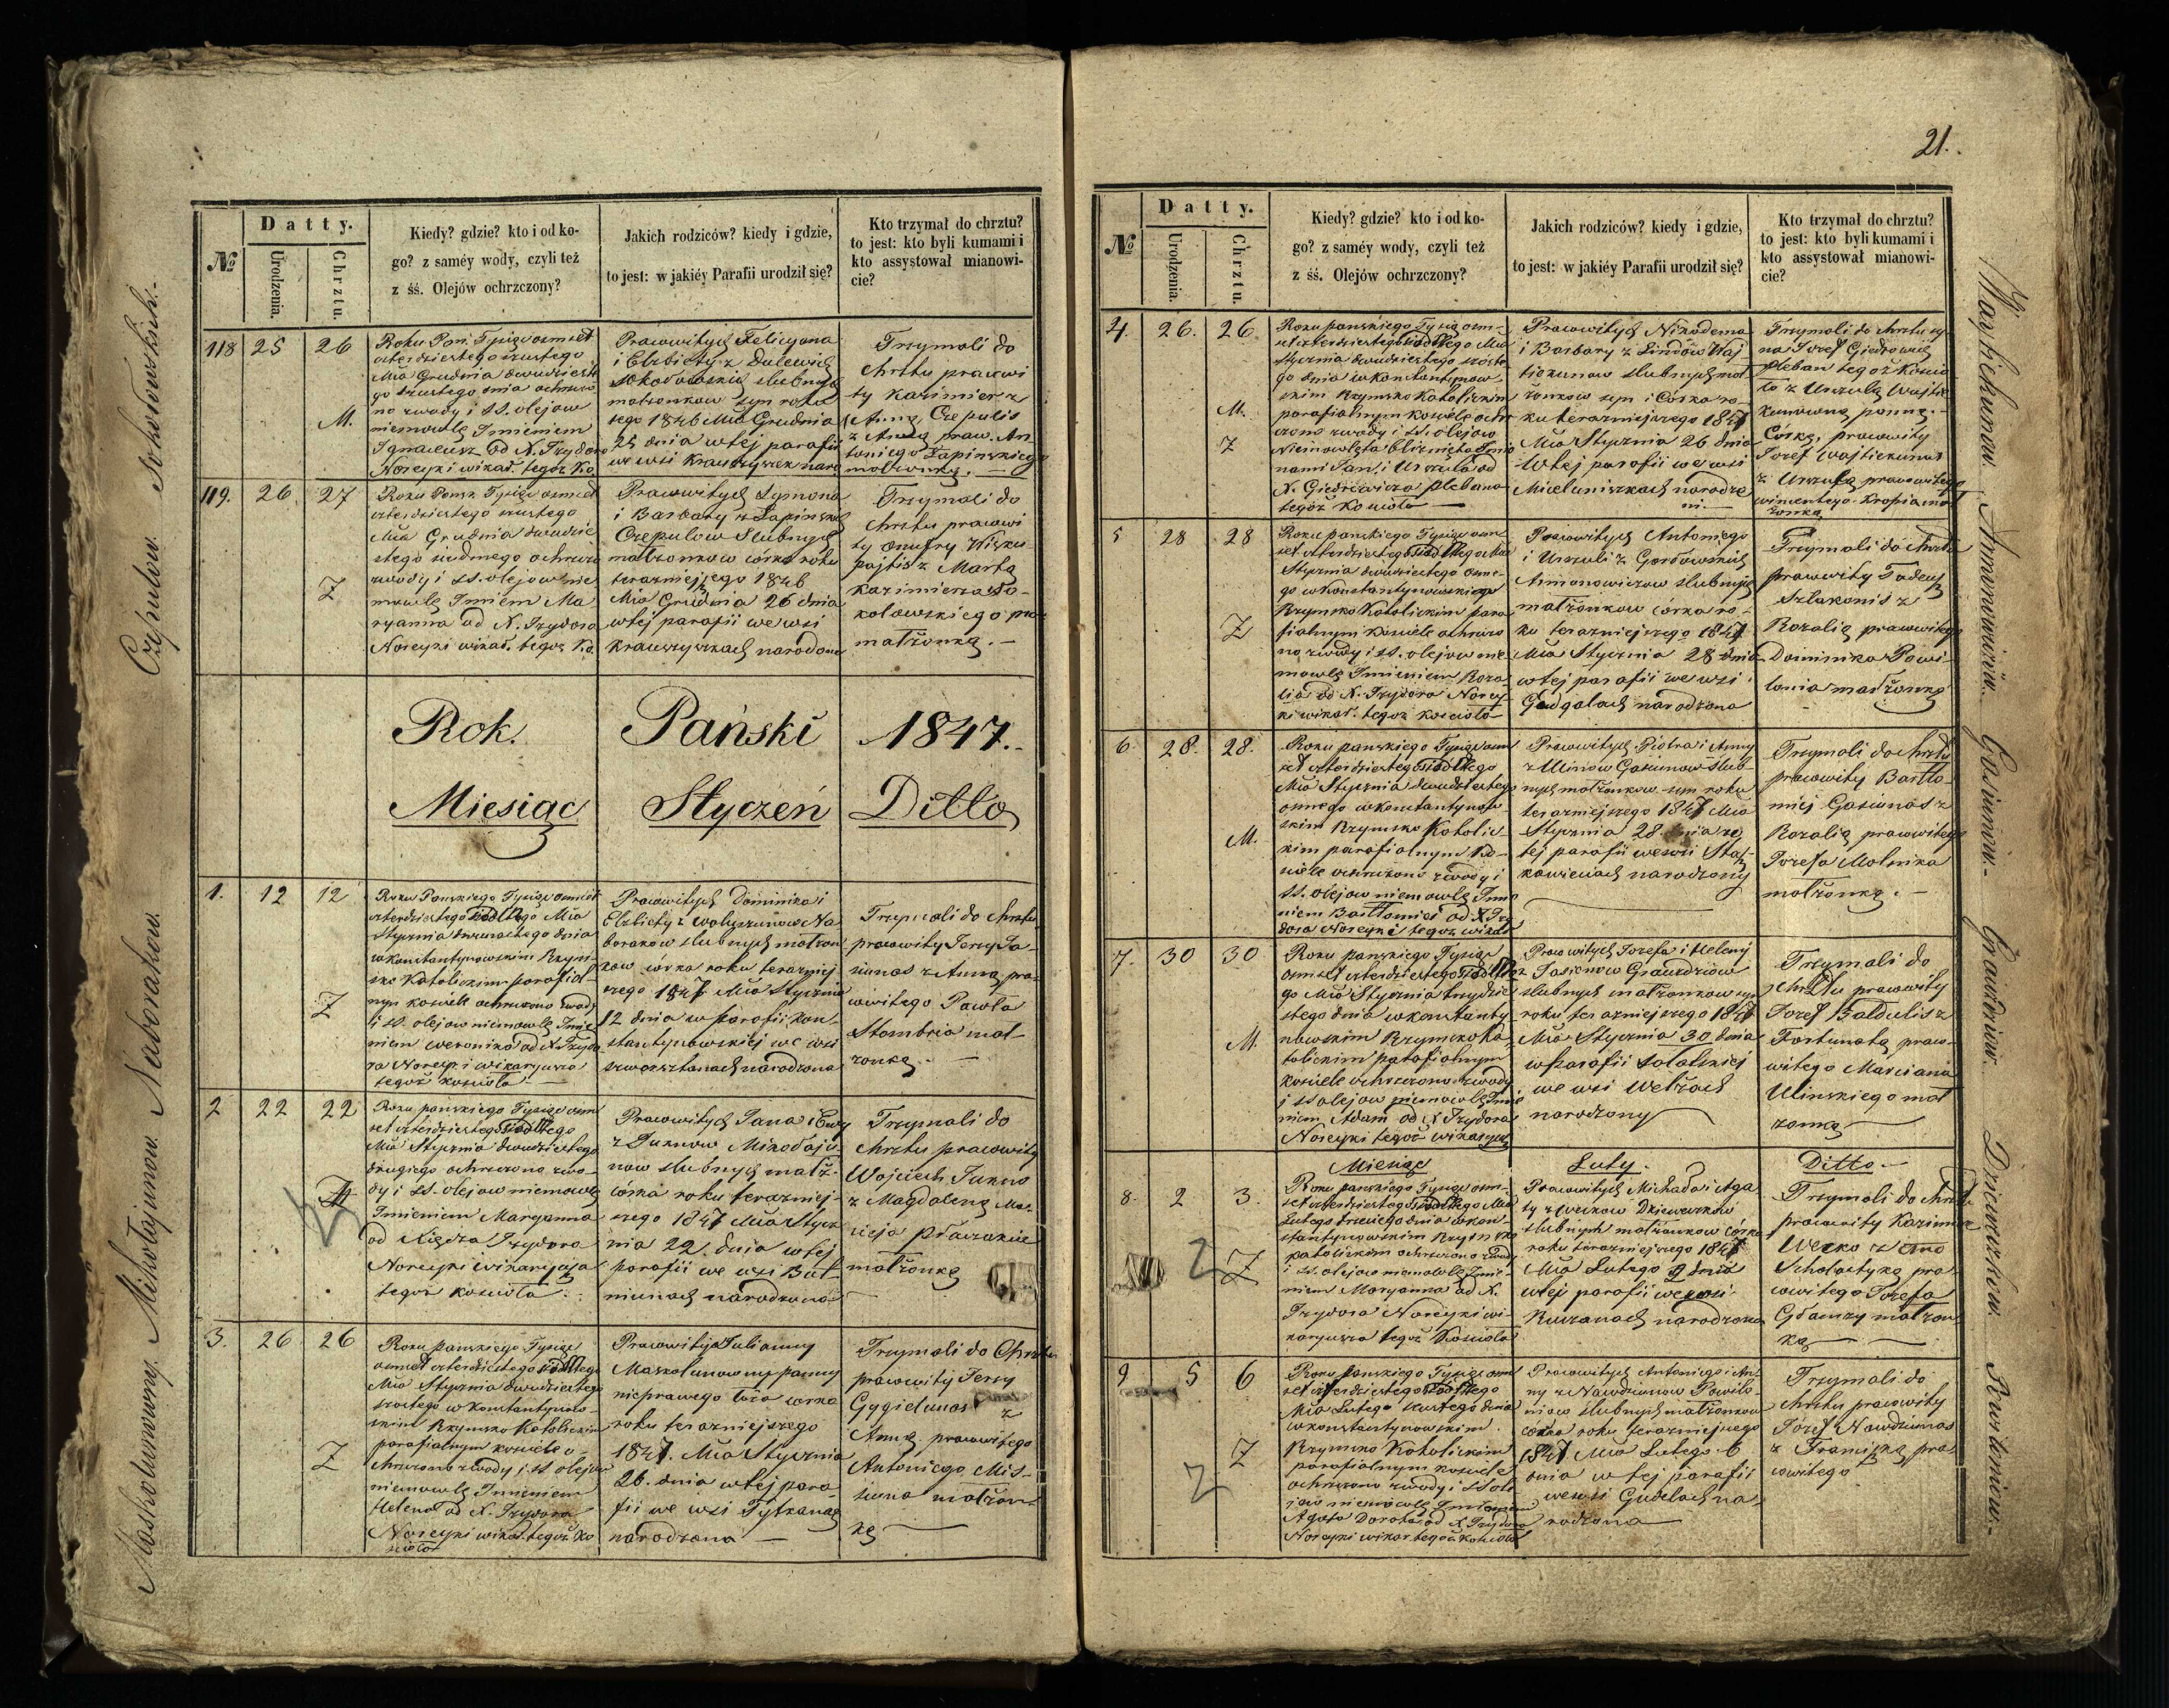 21.
Sokołowskich.
Czepulow.
Naborakow.
Mikołajunow.
Maskolunowny.
№
Datty.
Urodzenia.
Chrztu.
Kiedy? gdzie? kto i od ko-
go? z saméy wody, czyli też
z śś. Olejów ochrzczony?
Jakich rodziców? kiedy i gdzie,
to jest: w jakiéy Parafii urodził się?
Kto trzymał do chrztu?
to jest: kto byli kumami i
kto assystował mianowi-
cie?
118 25 26
M.
Roku Pań. Tysiąc osmset
czterdziestego szustego
Mca Grudnia dwudzieste
go szustego dnia ochrzczo
no z wody i SS. olejow
niemowle Imieniem
Ignaceusz od X. Izydora
Noreyki wikar. tegoż Ko.
Prawowitych Felicyana
i Elzbiety z Dulewicz
Sokołowskich slubnych
małzonkow syn roku
tego 1846 Mca Grudnia
25 dnia w tej parafii
we wsi
Trzymali do
chrztu pracowi
ty Kazimierz
Czepulis
z Anną praw. An
toniego Łapinskiego
małzonką. —
119. 26. 27
Z
Roku Pańs. Tysiąc osmset
czterdziestego szustego
Mca Grudnia dwudzie
stego siudmego ochrzczo
z wody i SS. olejow nie
mowle Imieniem Ma
ryanna od X. Izydora
Noreyki wikar. tegoż Ko.
Pracowitych Symona
i Barbary z Łapinskich
Czepulow slubnych
małzonkow córka roku
terazniejszego 1846
Mca Grudnia 26 dnia
w tej parafii we wsi
Krauszyszkach narodzona
Trzymali do
chrztu pracowi
ty Onufry
z Martą
Kazimierza So-
kołowskiego pra
małżonką. —
Rok. Pański 1847.
Miesiąc Styczeń Ditto
1. 12 12
Z
Roku Pańskiego Tysiąc osmset
czterdziestego siódmego Mca
Stycznia dwunastego dnia
w Konstantynowskim Rzyms-
ko Katolickim parafial-
nym kosciele ochrzczono z wody
i SS. olejow niemowle Imie
niem Weronika od X. Izydo
ra Noreyki wikaryusza
tegoż kościoła. —
Pracowitych Dominika i
Elzbiety z Wołyszunow Na
borakow slubnych małzon
kow córka roku teraznie
szego 1847 Mca Stycznia
12 dnia w parafii Kon-
stantynowskiej we wsi
narodzona
Trzymali do chrztu
pracowity Jerzy Ja-
siunas z Anną pra-
cowitego Pawła
Stombria mał-
zonką. —
2 22 22
Z
Roku pańskiego Tysiąc osm
set czterdziestego siódmego
Mca Stycznia dwudziestego
drugiego ochrzczono z wo-
dy i SS. olejow niemowle
Imieniem Maryanna
od Xiędza Izydora
Noreyki wikaryusza
tegoż kościoła. —
Pracowitych Jana i Ewy
z Juknow Mikołaju
now slubnych małż.
córka roku teraznie-
szego 1847 Mca Stycz
nia 22 dnia w tej
parafii we wsi But-
niunach narodzona
Trzymali do
chrztu pracowity
Wojciech Jukno
z Magdaleną Ma-
cieja
małżonką
3. 26 26
Z
Roku pańskiego Tysiąc
osmset czterdziestego siódmego
Mca Stycznia dwudziestego
szostego w Konstantynow-
skim Rzymsko Katolickim
parafialnym kosciele o-
chrzczono z wody i SS olejow
niemowle Imieniem
Helena od X. Izydora
Noreyki wikar. tegoż Ko
scioła
Pracowitej Julianny
Maskolunowny panny
nieprawego łoża córka
roku teraznieyszego
1847. Mca Stycznia
26. dnia w tej para-
fii we wsi Tytkanach
narodzona —
Trzymali do Chrztu
pracowity Jerzy
Gygielunas z
Anną pracowitego
Antoniego Mis-
iuna małżon
ką —
№
Datty.
Urodzenia.
Chrztu.
Kiedy? gdzie? kto i od ko-
go? z saméy wody, czyli też
z śś. Olejów ochrzczony?
Jakich rodziców? kiedy i gdzie,
to jest: w jakiéy Parafii urodził się?
Kto trzymał do chrztu?
to jest: kto byli kumami i
kto assystował mianowi-
cie?
4. 26. 26
M.
Z
Roku pańskiego Tysiąc osm-
set czterdziestego siódmego Mca
Stycznia dwudziestego szoste
go dnia w Konstantynow-
skim Rzymsko Katolickim
parafialnym kosciele ochrz
czono z wody i SS. olejow
Niemowlęta bliznięta Imio
nami Jan, i Urszula od
X. Giedrewicza Plebana
tegoż Kościoła —
Pracowitych Nikodema
i Barbary z Lindow Waj-
tiekunow slubnych mał
żonkow syn i Córka ro-
ku teraznieyszego 1847
Mca Stycznia 26 dnia
w tej parafii we wsi
Mieluniszkach narodze
ni. —
Trzymali do chrztu sy-
na Jozef Giedrewicz
Pleban tegoż Kościo
ła z Urszulą Wajtie
kunowną panną. —
Córkę, pracowity
Jozef Wajtiekunas
z Urszulą pracowitego
Wincentego Kropia mał
żonką
5 28 28
Z
Roku pańskiego Tysiąc osm-
set czterdziestego siódmego Mca
Stycznia dwudziestego osme-
go w Konstantynowskiego
Rzymsko Katolickim para
fialnym kosciele ochrzczo
no z wody i SS. olejow nie
mowle Imieniem Roza-
lia od X. Izydora Norey
ki wikar. tegoż kościoła
Pracowitych Antoniego
i Urszuli z Gordowskich
Armonowiczow slubnych
małżonkow córka ro-
ku teraznieyszego 1847
Mca Stycznia 28 dnia
w tej parafii we wsi
narodzona
Trzymali do chrztu
pracowity Tadeusz
Szlakonis z
Rozalią pracowitego
Dominika Powi-
łonia małżonką
6. 28. 28.
M.
Roku pańskiego Tysiąc osm
set czterdziestego siódmego
Mca Stycznia dwudziestego
osmego w Konstantynow
skim Rzymsko Katolic-
kim parafialnym Ko-
sciele ochrzczono z wody i
SS. olejow niemowle Imie
niem Bartłomiei od X Izy
dora Noreyki tegoż wikar
Pracowitych Piotra i Anny
z Ulinow Gasiunow slub-
nych małżonkow syn roku
teraznieyszego 1847 Mca
Stycznia 28 dnia w
tej parafii we wsi Staś-
kowicach narodzony
Trzymali do chrztu
pracowity Bartło-
miej Gasiunas z
Rozalią pracowitego
Jozefa Molnika
małżonką. —
7. 30 30
M.
Roku pańskiego Tysiąc
osmset czterdziestego siódme
go Mca Stycznia trzydzie
stego dnia w Konstanty
nowskim Rzymsko Ka-
tolickim parafialnym
kosciele ochrzczono z wody
i SS olejow niemowle Imie
niem Adam od X Izydora
Noreyki tegoż wikaryusz
Pracowitych Jozefa i Heleny
z Jasionow Grawdziow
slubnych małżonkow syn
roku teraznieyszego 1847
Mca Stycznia 30 dnia
w parafii Solaskiej
we wsi Wełżach
narodzony
Trzymali do
chrztu pracowity
Jozef Baldulis z
Fortunatą praco-
witego Marciana
Ulinskiego mał
zonką —
Miesiąc Luty. Ditto. —
8. 2 3.
Z
Roku pańskiego Tysiąc osm-
set czterdziestego siódmego Mca
Lutego trzeciego dnia w Kon-
stantynowskim Rzymsko
Katolickim ochrzczono z wody
i SS. olejow niemowle Imie-
niem Maryanna od X.
Izydora Noreyki wi-
karyusza tegoż Kościoła
Pracowitych Michała i Aga
ty z Wećkow
slubnych małżonkow córka
roku teraznieyszego 1847
Mca Lutego 2 dnia
w tej parafii we wsi
Kurzanach narodzona
Trzymali do chrztu
pracowity Kazimierz
Wećko z
Scholastyką pra-
cowitego Jozefa
małzon
ką —
9 5 6
Z
Roku pańskiego Tysiąc osm
set czterdziestego siódmego
Mca Lutego szustego dnia
w Konstantynowskim
Rzymsko Katolickim
parafialnym kosciele
ochrzczono z wody i SS ole
jow niemowle Imieniem
Agata Dorota od X. Izydora
Noreyki wikar. tegoż kościoła
Pracowitych Antoniego i An-
ny z Nawdziunow Powiło-
niow slubnych małżonkow
córka roku teraznieyszego
1847 Mca Lutego 6
dnia w tej parafii
we wsi Gudelach na-
rodzona —
Trzymali do
chrztu pracowity
Józef Nawdziunas
z Franciszką pra-
cowitego
Wajtiekunow.
Armonowiczów.
Gasiunow.
Grawdziow.